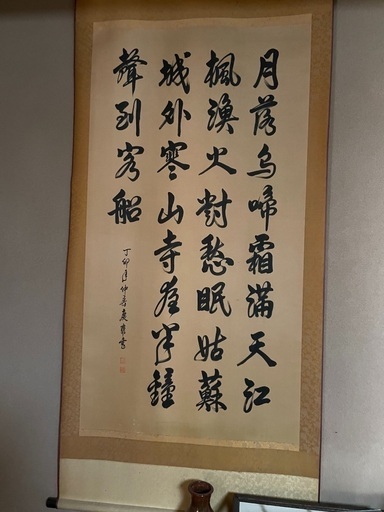 月落烏啼霜滿天江
楓漁火對愁眠姑蘇
城外寒山寺夜半鐘
聲到客船
丁卯年仲春